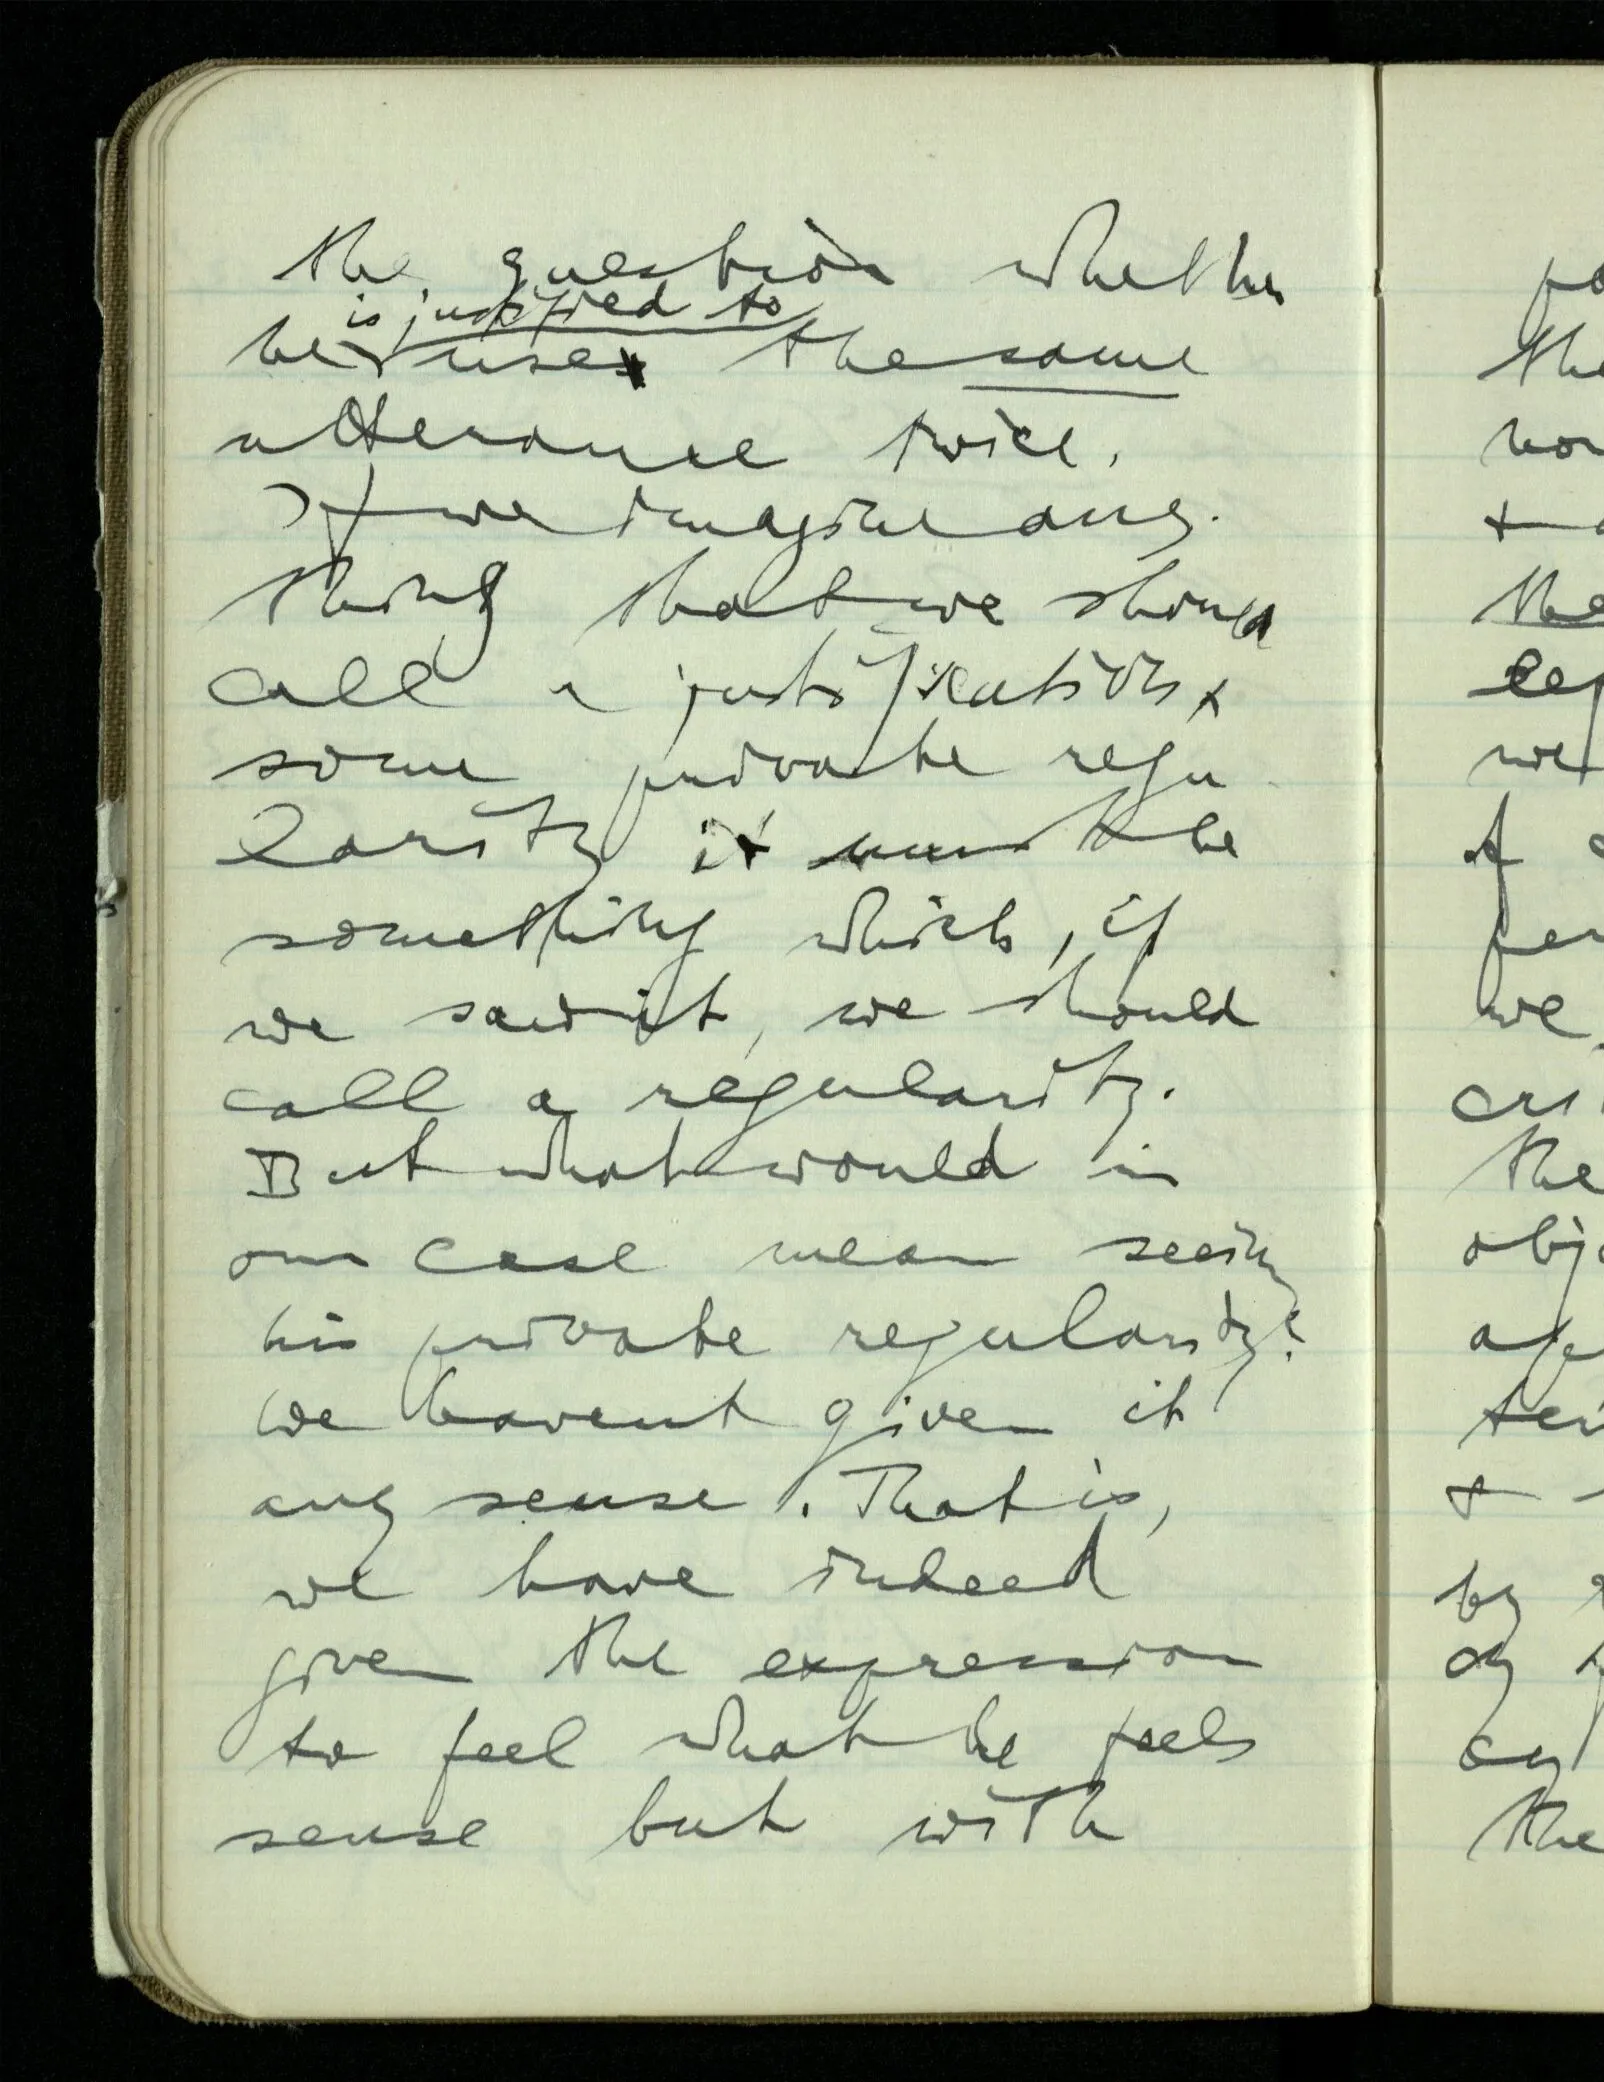 the question whether
is justified to
he use the same
utterance twice.
If we imagine any-
thing that we should
call a justification,
some private regu-
larity it must be
something which, if
we saw it, we should
call a regularity.
But what would in
our case mean seeing
his private regularity?
We havent given it
any sense. That is,
we have indeed
given the expression
to feel what he feels
sense but with
the
we
the
the